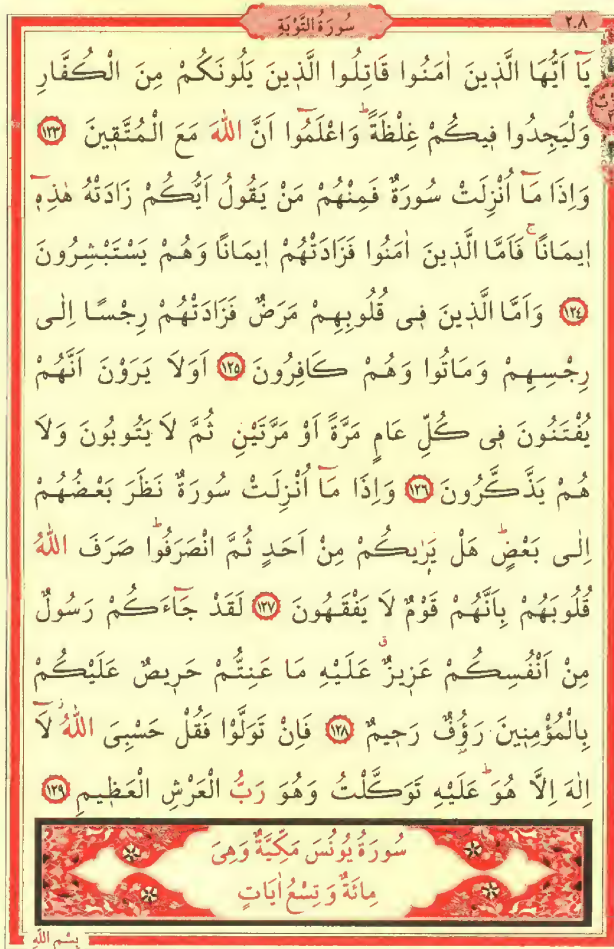 ٢٠٨
سُورَةُ التَّوْبَةِ
يَٓا اَيُّهَا الَّذ۪ينَ اٰمَنُوا قَاتِلُوا الَّذ۪ينَ يَلُونَكُمْ مِنَ الْكُفَّارِ
وَلْيَجِدُوا ف۪يكُمْ غِلْظَةًۜ وَاعْلَمُٓوا اَنَّ اللّٰهَ مَعَ الْمُتَّق۪ينَ ﴿١٢٣﴾
وَاِذَا مَٓا اُنْزِلَتْ سُورَةٌ فَمِنْهُمْ مَنْ يَقُولُ اَيُّكُمْ زَادَتْهُ هٰذِه۪ٓ
ا۪يمَانًاۚ فَاَمَّا الَّذ۪ينَ اٰمَنُوا فَزَادَتْهُمْ ا۪يمَانًا وَهُمْ يَسْتَبْشِرُونَ
﴿١٢٤﴾ وَاَمَّا الَّذ۪ينَ ف۪ي قُلُوبِهِمْ مَرَضٌ فَزَادَتْهُمْ رِجْسًا اِلٰى
رِجْسِهِمْ وَمَاتُوا وَهُمْ كَافِرُونَ ﴿١٢٥﴾ اَوَلَا يَرَوْنَ اَنَّهُمْ
يُفْتَنُونَ ف۪ي كُلِّ عَامٍ مَرَّةً اَوْ مَرَّتَيْنِ ثُمَّ لَا يَتُوبُونَ وَلَا
هُمْ يَذَّكَّرُونَ ﴿١٢٦﴾ وَاِذَا مَٓا اُنْزِلَتْ سُورَةٌ نَظَرَ بَعْضُهُمْ
اِلٰى بَعْضٍۜ هَلْ يَرٰيكُمْ مِنْ اَحَدٍ ثُمَّ انْصَرَفُواۜ صَرَفَ اللّٰهُ
قُلُوبَهُمْ بِاَنَّهُمْ قَوْمٌ لَا يَفْقَهُونَ ﴿١٢٧﴾ لَقَدْ جَٓاءَكُمْ رَسُولٌ
مِنْ اَنْفُسِكُمْ عَز۪يزٌ عَلَيْهِ مَا عَنِتُّمْ حَر۪يصٌ عَلَيْكُمْ
بِالْمُؤْمِن۪ينَ رَؤُ۫فٌ رَح۪يمٌ ﴿١٢٨﴾ فَاِنْ تَوَلَّوْا فَقُلْ حَسْبِيَ اللّٰهُۘ لَٓا
اِلٰهَ اِلَّا هُوَۜ عَلَيْهِ تَوَكَّلْتُ وَهُوَ رَبُّ الْعَرْشِ الْعَظ۪يمِ ﴿١٢٩﴾
سُورَةُ يُونُسَ مَكِّيَّةٌ وَهِيَ
مِائَةٌ وَ تِسْعُ اٰيَاتٍ
بِسْمِ اللّٰهِ